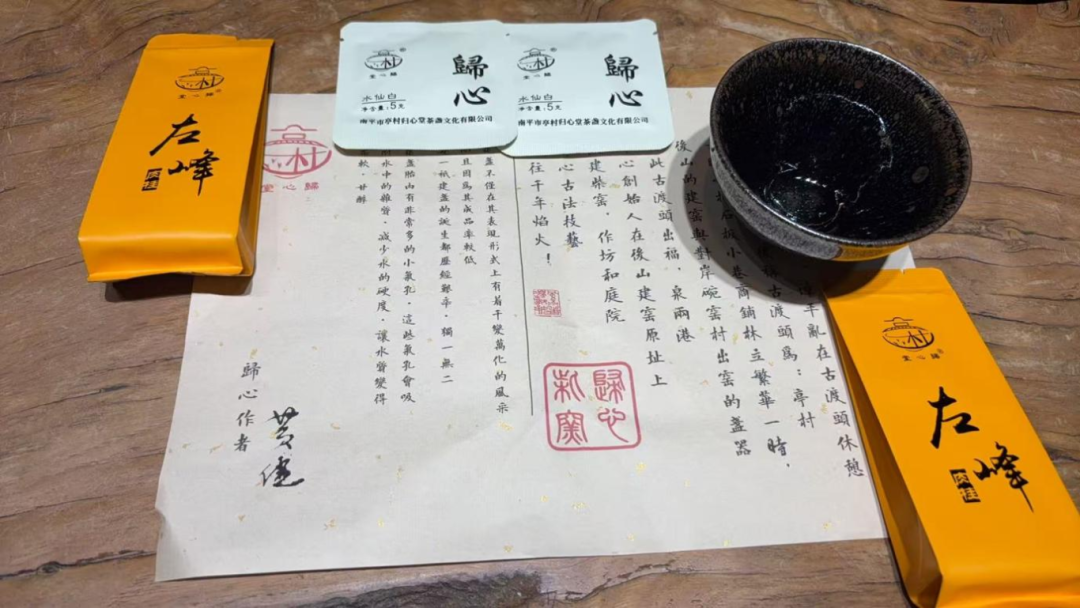 左峰
肉桂
堂心歸
歸心
水仙白
净含量:5克
南平市亭村归心堂茶盏文化有限公司
歸心
水仙白
净含量:5克
南平市亭村归心堂茶盏文化有限公司
亂在古渡頭休憩
古渡頭為:亭村
小巷商鋪林立繁華一時,
後山的建窑與對岸碗窑村出窑的盞器
此古渡頭出福,泉兩港
心創始人在後山建窑原址上
建柴窑,作坊和庭院
心古法技藝
往千年焰火!
歸心
新窯
盞不僅在其表現形式上有着千變萬化的風采
且因爲其成品率較低
一祇建盞的誕生都歷經艱辛,獨一無二
盞胎内有非常多的小氣孔,這些氣孔會吸
水中的雜質,减少水的硬度,讓水質變得
軟,甘醇
歸心作者
黄健
堂心歸
左峰
肉桂
堂心歸